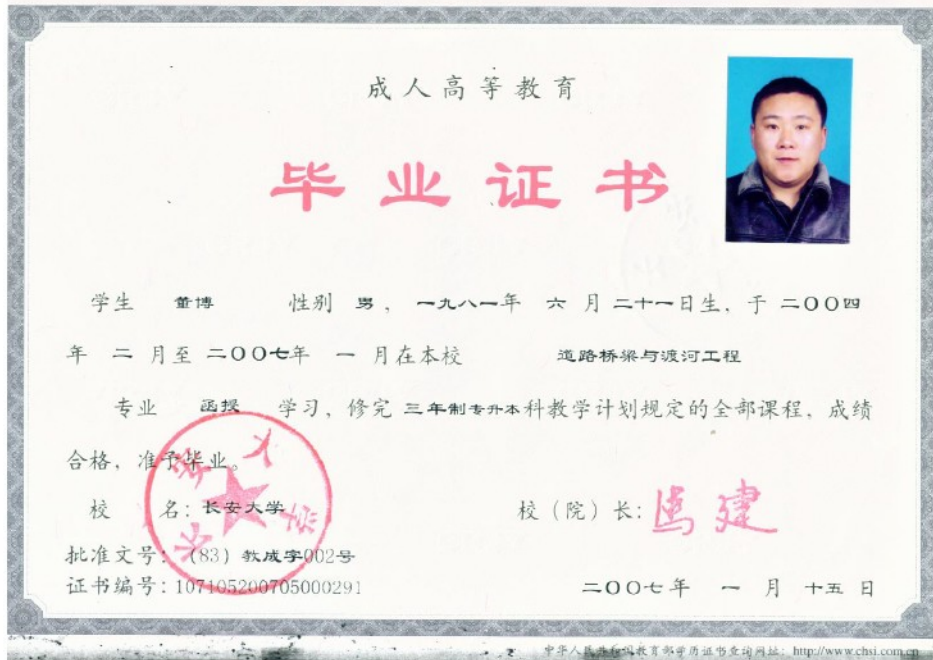 成人高等教育
毕业证书
学生 董博 性别 男，一九八一年 六 月 二十一日生，于 二〇〇四
年 二 月至 二〇〇七年 一 月在本校 道路桥梁与渡河工程
专业 函授 学习，修完 三年制专升本科教学计划规定的全部课程，成绩
合格，准予毕业。
校 名：长安大学
校（院）长：
批准文号：（83）教成字002号
证书编号：107105200705000291
二〇〇七年 一 月 十五 日
长安大学
中华人民共和国教育部学历证书查询网址：http://www.chsi.com.cn